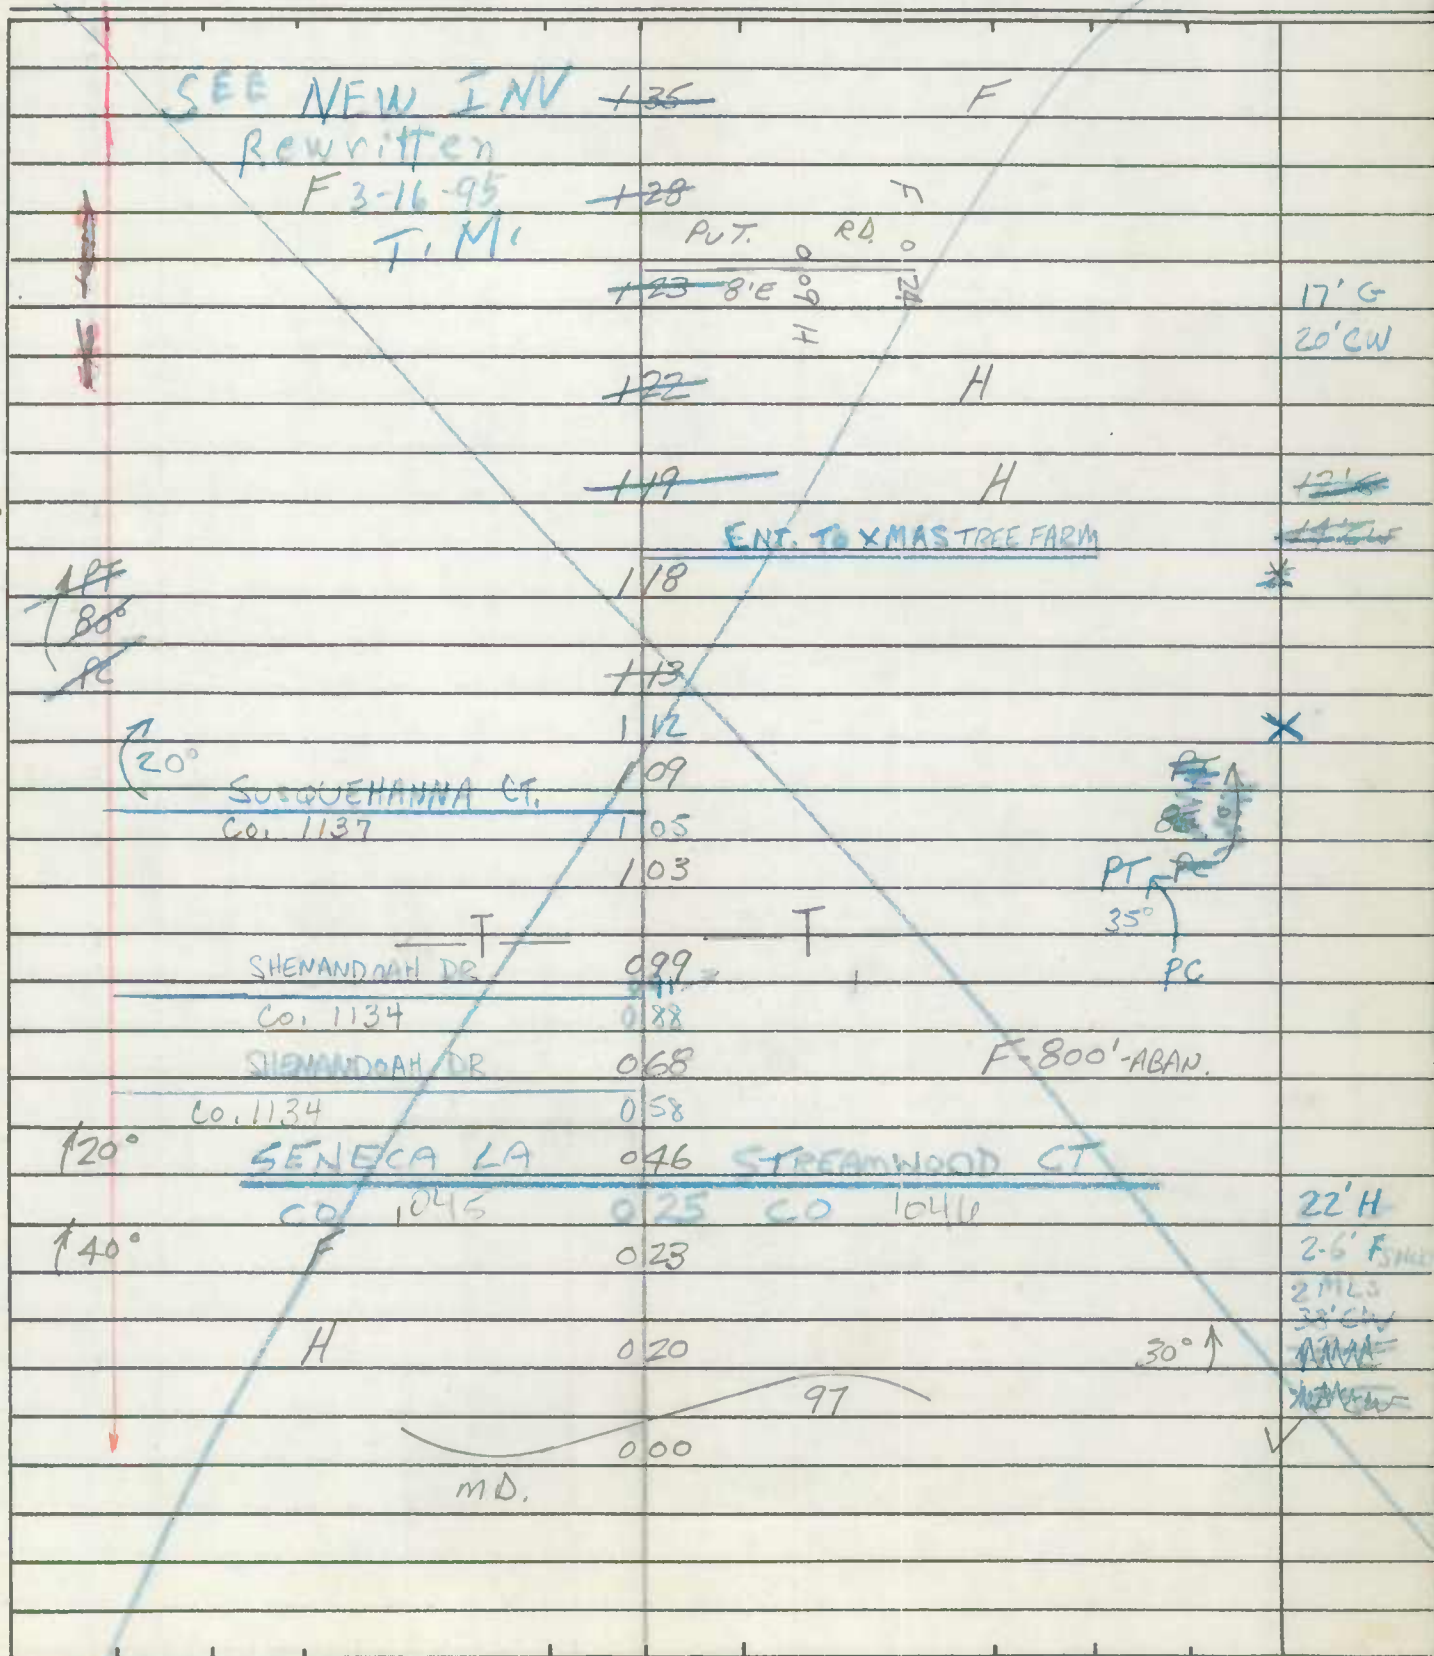 SEE NEW INV 1 35 F
Rewritten
F 3-16-95 1 28 F
T. M. PVT. RD. 0
1 23 8'E 0 09 24 17' G
H 20' CW
1 22 H
1 19 H
ENT. TO XMAS TREE FARM
PT 1 18
80°
PC 1 13
1 12 X
20° 09
SUSQUEHANNA CT.
CO. 1137 1 05
1 03 PT PC
35°
T T
SHENANDOAH DR 0 99 PC
CO. 1134 0 88
SHENANDOAH DR 0 68 F-800'-ABAN.
CO. 1134 0 58
20° SENECA LA 0 46 STREAMWOOD CT
CO 1045 0 25 CO 1046 22' H
40° F 0 23 2-6' F
2 MLS
38' CW
H 0 20 30°
97
0 00
MD.